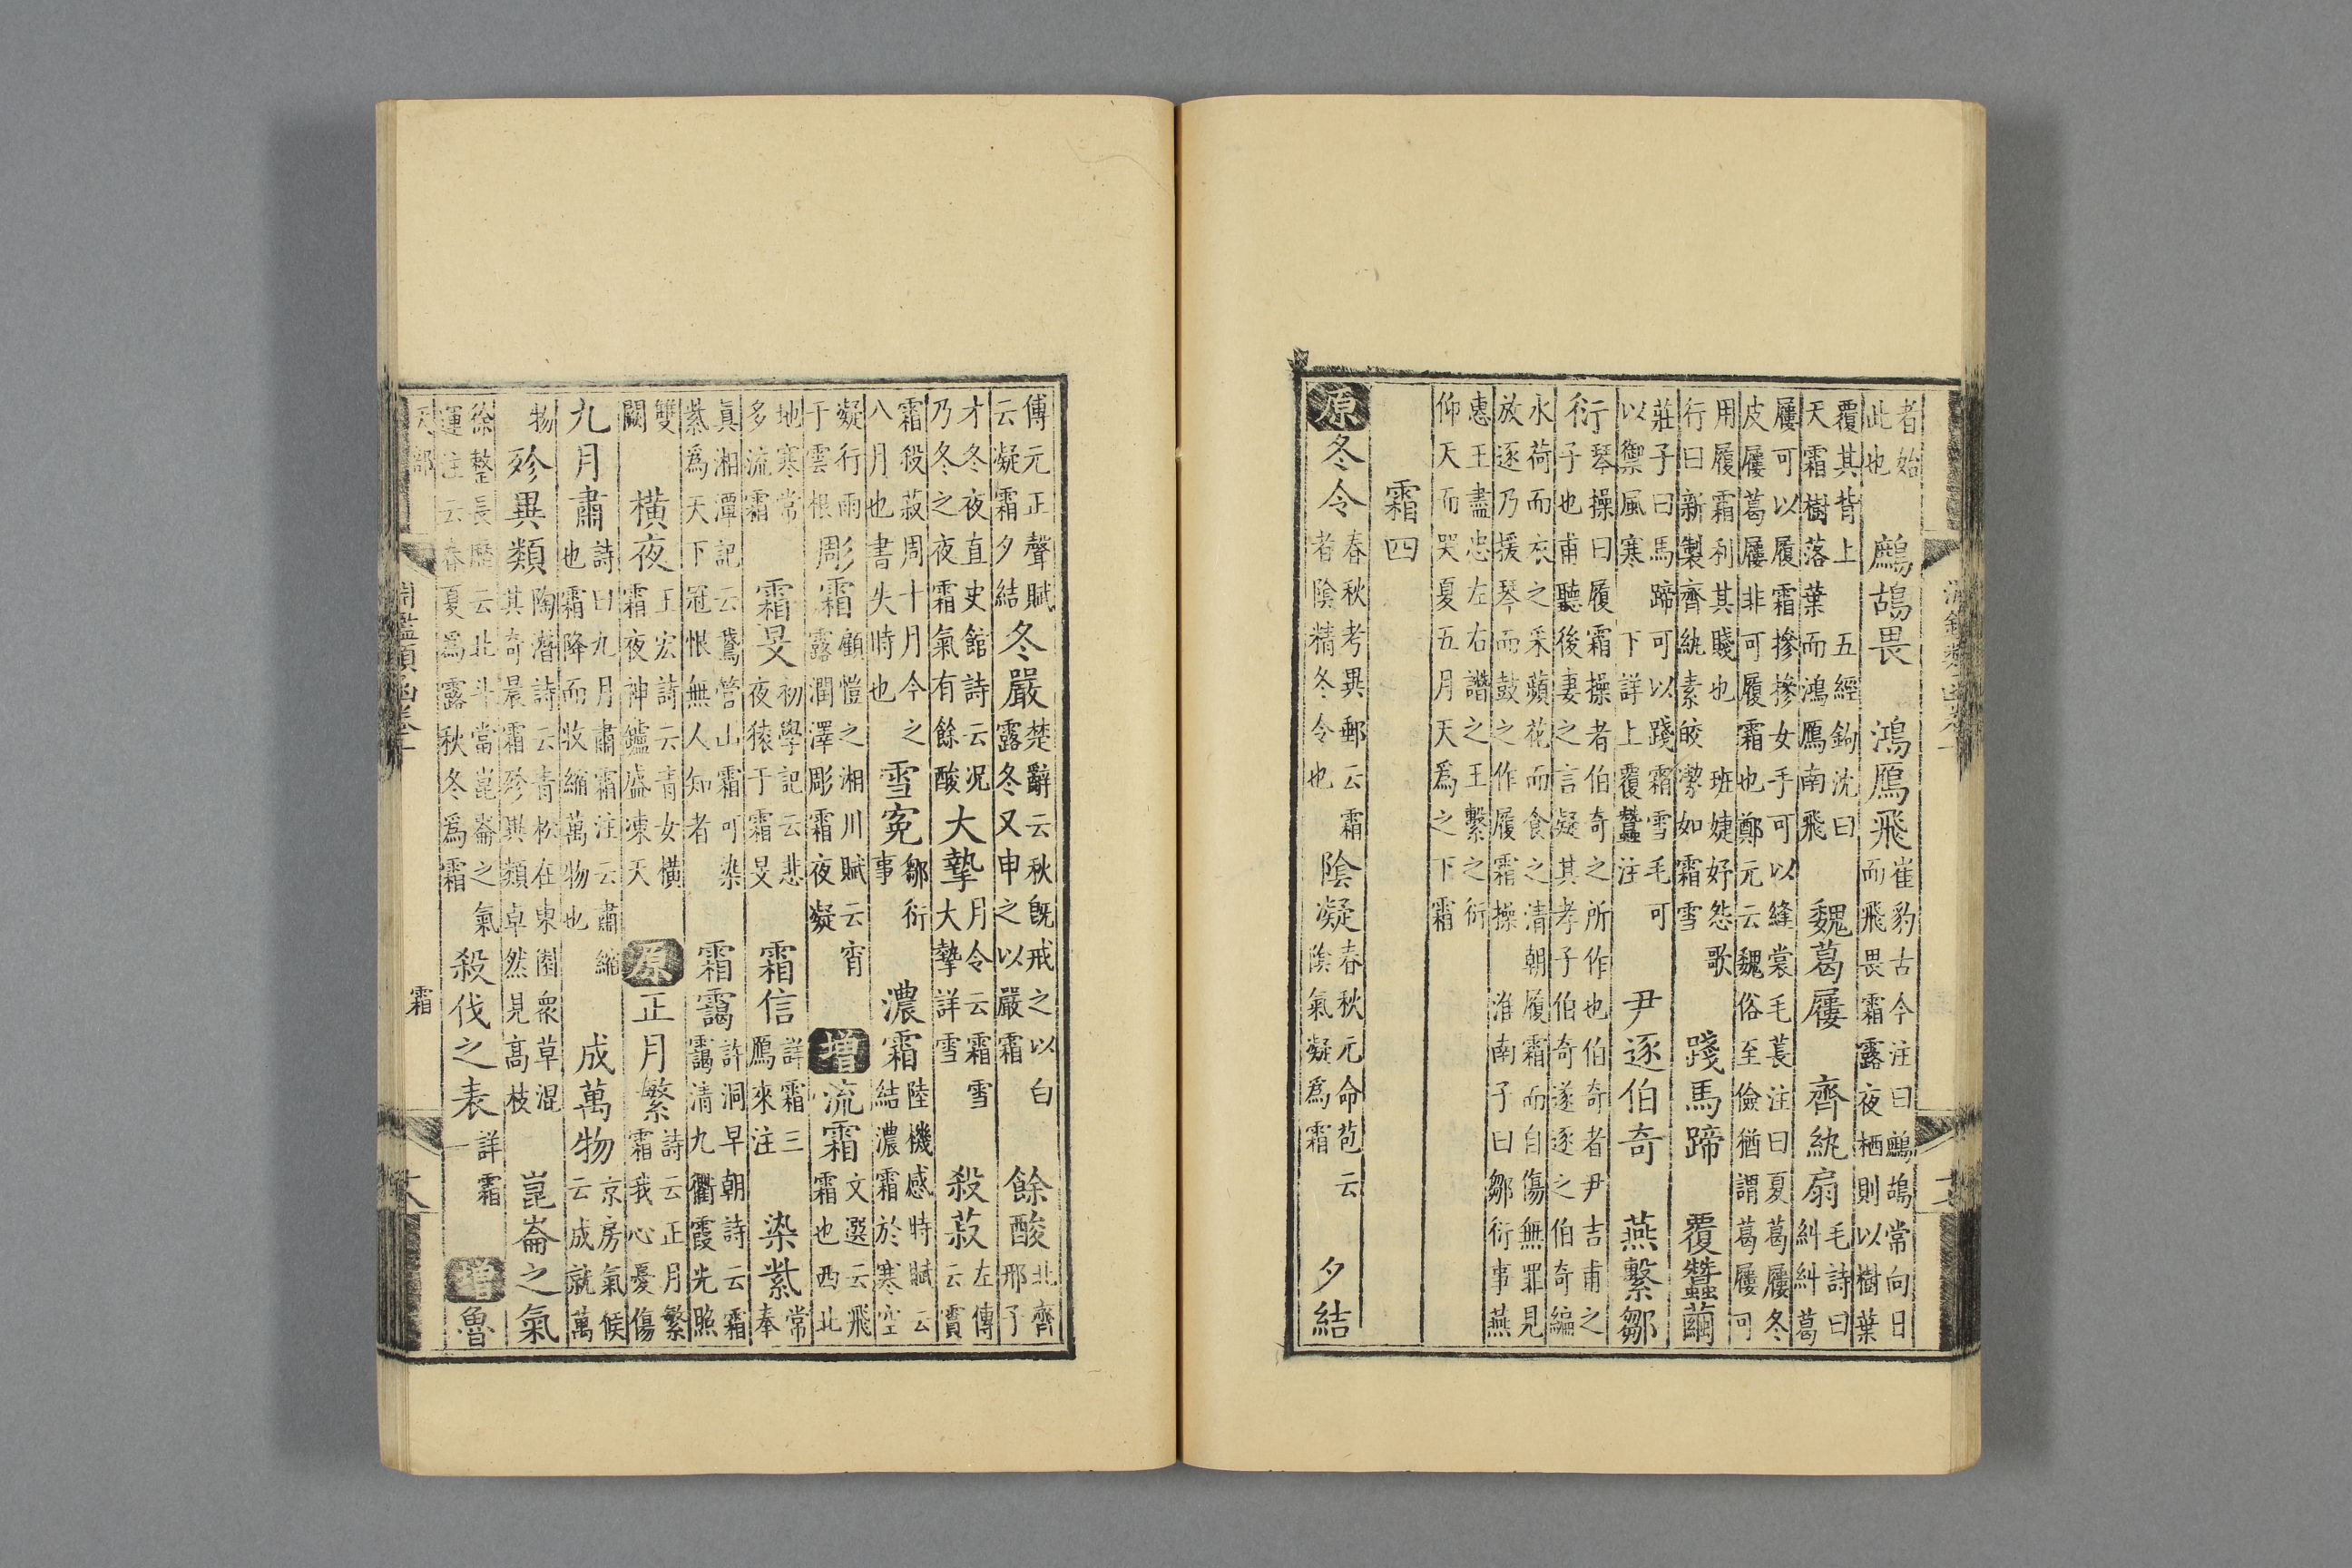 者始
此也
鷓鴣畏 鴻鴈飛
崔豹古今注曰鷓鴣常向日
而飛畏霜露夜栖則以樹葉
覆其背上 五經鉤沈曰
天霜樹落葉而鴻鴈南飛
魏葛屨 齊紈扇
毛詩曰
糾糾葛
屨可以履霜摻摻女手可以縫裳毛萇注曰夏葛屨冬
皮屨葛屨非可履霜也鄭元云魏俗至儉猶謂葛屨可
用履霜利其賤也 班婕妤怨歌
行曰新製齊紈素皎潔如霜雪
踐馬蹄 覆蠶繭
莊子曰馬蹄可以踐霜雪毛可
以禦風寒 下詳上覆蠶注
尹逐伯奇 燕繫鄒
衍
琴操曰履霜操者伯奇之所作也伯奇者尹吉甫之
子也甫聽後妻之言疑其孝子伯奇遂逐之伯奇編
水荷而衣之采蘋花而食之清朝履霜而自傷無罪見
放逐乃援琴而鼓之作履霜操 淮南子曰鄒衍事燕
惠王盡忠左右譖之王繫之衍
仰天而哭夏五月天爲之下霜
霜四
原冬令
春秋考異郵云霜
者陰精冬令也
陰凝
春秋元命苞云
陰氣凝爲霜
夕結
傅元正聲賦
云凝霜夕結
冬嚴
楚辭云秋旣戒之以白
露冬又申之以嚴霜
餘酸
北齊
邢子
才冬夜直史館詩云况
乃冬之夜霜氣有餘酸
大摯
月令云霜雪
大摯詳雪
殺菽
左傳
云霣
霜殺菽周十月今之
八月也書失時也
雪寃
鄒衍
事
濃霜
陸機感時賦云
結濃霜於寒空
凝行雨
于雲根
彫霜
顧愷之湘川賦云宵
露潤澤彫霜夜凝
增流霜
文選云飛
霜也西北
地寒常
多流霜
霜旻
初學記云悲
夜猿于霜旻
霜信
詳霜三
鴈來注
染紫
常
奉
眞湘潭記云鵞管山霜可染
紫爲天下冠恨無人知者
霜靄
許洞早朝詩云霜
靄清九衢霞光照
雙
闕
橫夜
王宏詩云青女橫
霜夜神鑪盛凍天
原正月繁
詩云正月繁
霜我心憂傷
九月肅
詩曰九月肅霜注云肅縮
也霜降而收縮萬物也
成萬物
京房氣候
云成就萬
物
殄異類
陶潛詩云青松在東園衆草混
其奇晨霜殄異類卓然見高枝
崑崙之氣
徐整長歷云北斗當崑崙之氣
運注云春夏爲露秋冬爲霜
殺伐之表
詳霜
一
增魯
天部 霜